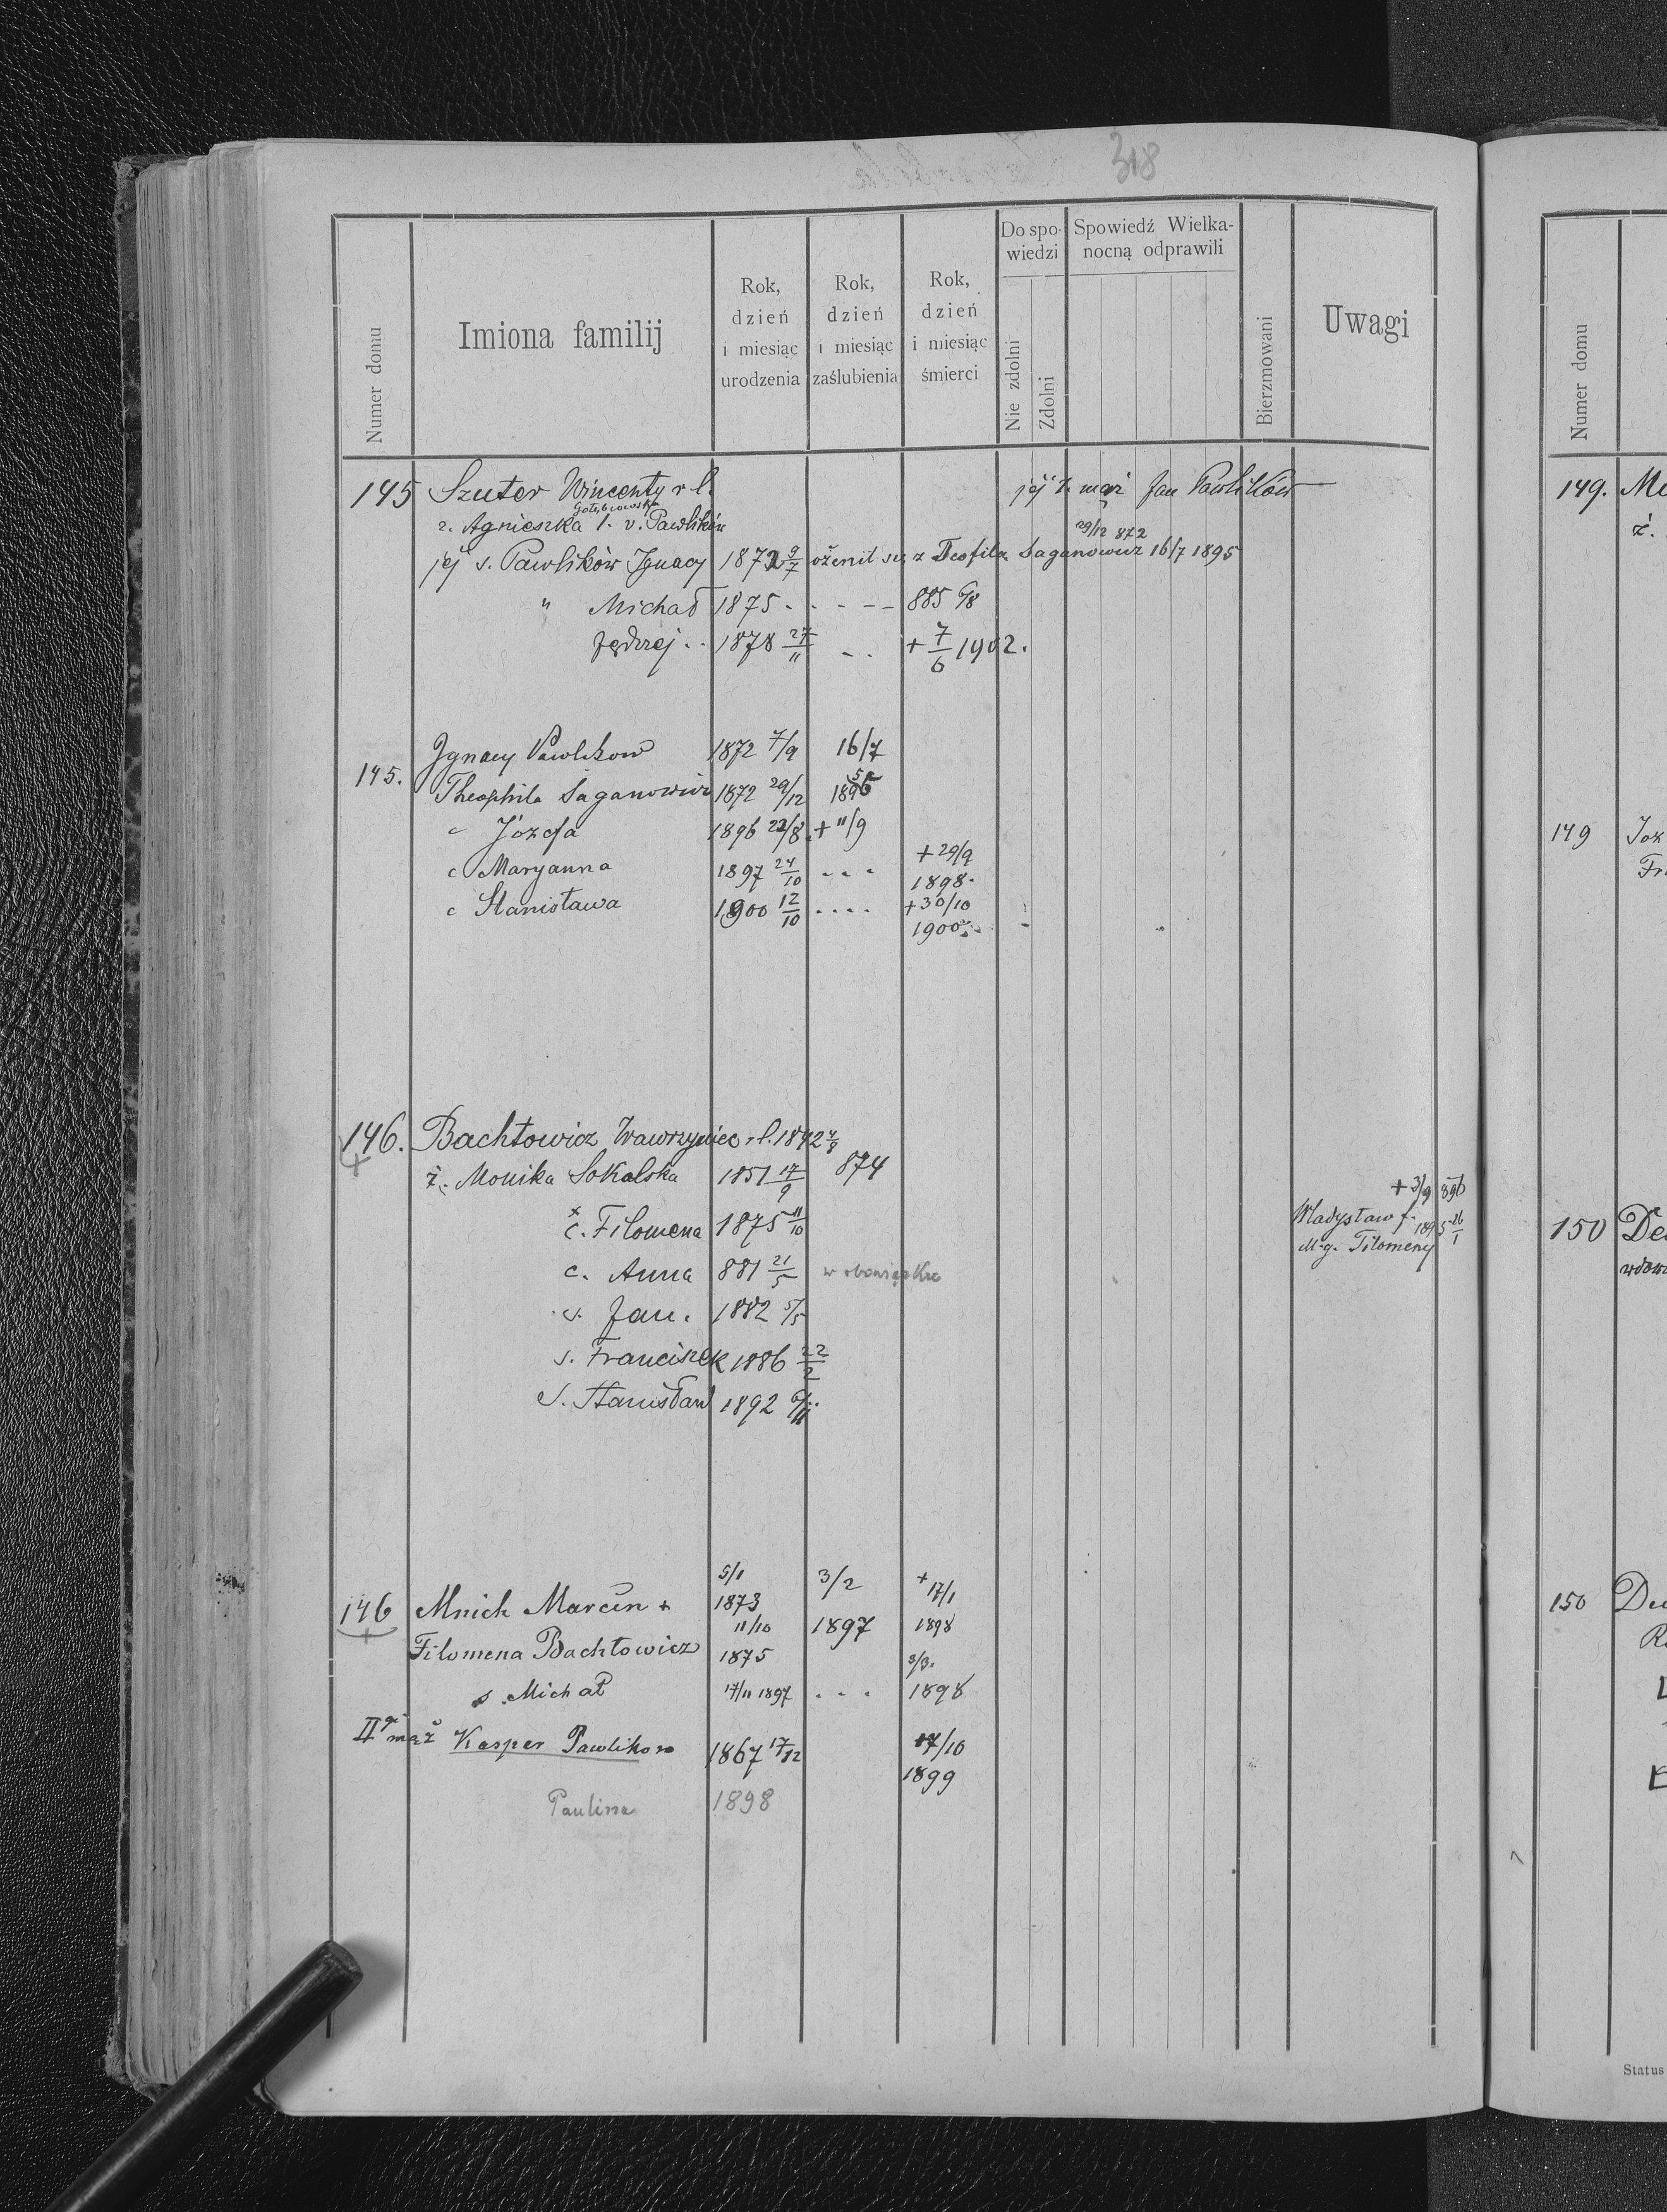 318
Numer domu
Imiona familij
Rok, dzień i miesiąc urodzenia
Rok, dzień i miesiąc zaślubienia
Rok, dzień i miesiąc śmierci
Do spowiedzi
Nie zdolni
Zdolni
Spowiedź Wielkanocną odprawili
Bierzmowani
Uwagi
145 Szuter Wincenty r l. jej 1. mąż Jan Pawlików
Gołębiowska
ż. Agnieszka 1. v. Pawlików
jej s. Pawlików Ignacy 1872 9/7 ożenił się z Teofila Saganowicz 16/7 1895
29/12 872
" Michał 1875 - - - - 885 6/8
Jędrzej .. 1878 27/11 .. + 7/6 1902.
145. Ignacy Pawlikow 1872 7/9 16/7
Theophila Saganowicz 1872 29/12 1895
c Józefa 1896 22/8 + 11/9
c Maryanna 1897 24/10 - - - + 29/9 1898.
c Stanisława 1900 12/10 .... + 30/10 1900
146. Bachtowicz Wawrzyniec r. l. 1842 4/8
ż. Monika Sokalska 1851 17/9 874
c. Filomena 1875 11/10
+ 3/9 896
Władysław f. 1895 26/1
M. g. Filomeny
c. Anna 881 21/5 w obowiązku
s. Jan. 1882 5/5
s. Franciszek 1886 22/2
s. Stanisław 1892 6/11
146 Mnich Marcin + 5/1 1873 3/2 1897 + 17/1 1898
Filomena Bachtowicz 11/10 1875
s. Michał 17/11 1897 . . . 3/3. 1898
IIgi mąż Kasper Pawlikow 1867 17/12 17/10 1899
Paulina 1898
Numer domu
149. 
ż.
149 Joz
Fr
150 De
wdow
150 
Status